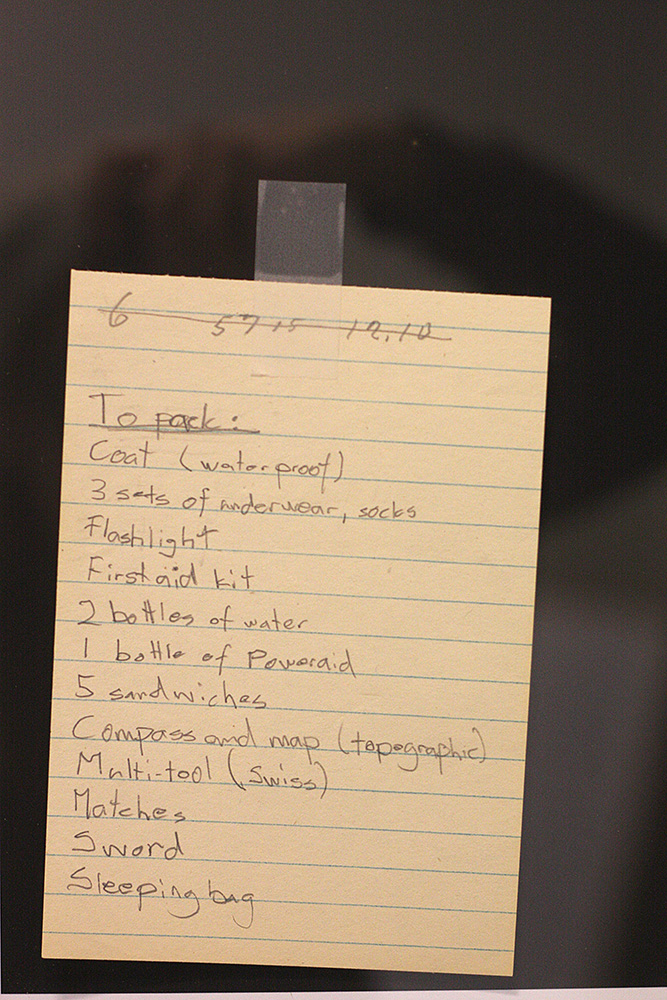 6 57 15 12,10
To pack:
Coat (waterproof)
3 sets of underwear, socks
Flashlight
First aid kit
2 bottles of water
1 bottle of Poweraid
5 sandwiches
Compass and map (topographic)
Multi-tool (Swiss)
Matches
Sword
Sleeping bag